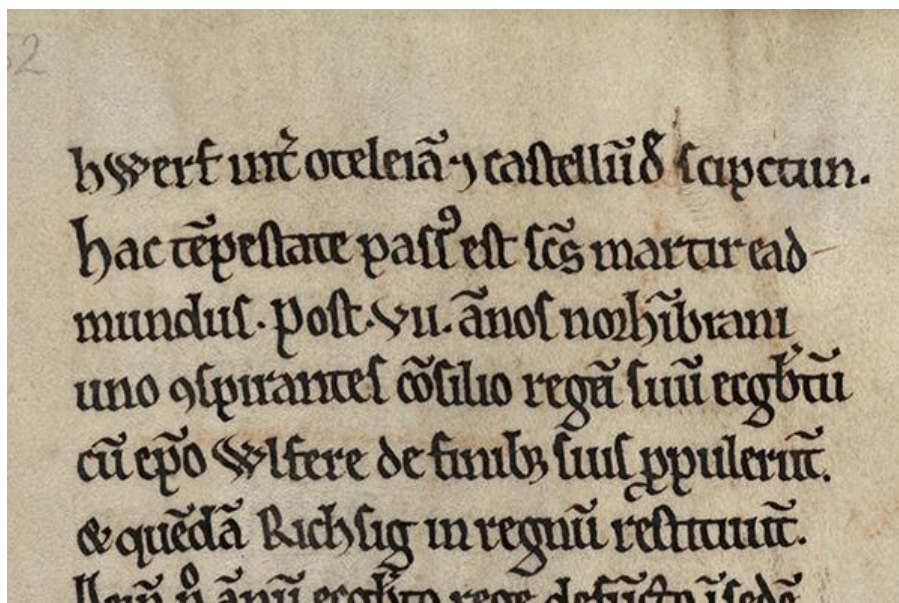 52
hƿerf int̄ oteleiā ⁊ castellūđ scipctun.
hac tēpestate passꝰ est sc̄s martir ead
mundus. Post. vii. ānos norhībrani
uno ꝯspirantes cōsilio regē suū ecgb̄tū
cū ep̄o Wlfere de finibꝫ suis ꝓpulerūt.
& quēdā Richsig in regnū restituūt.